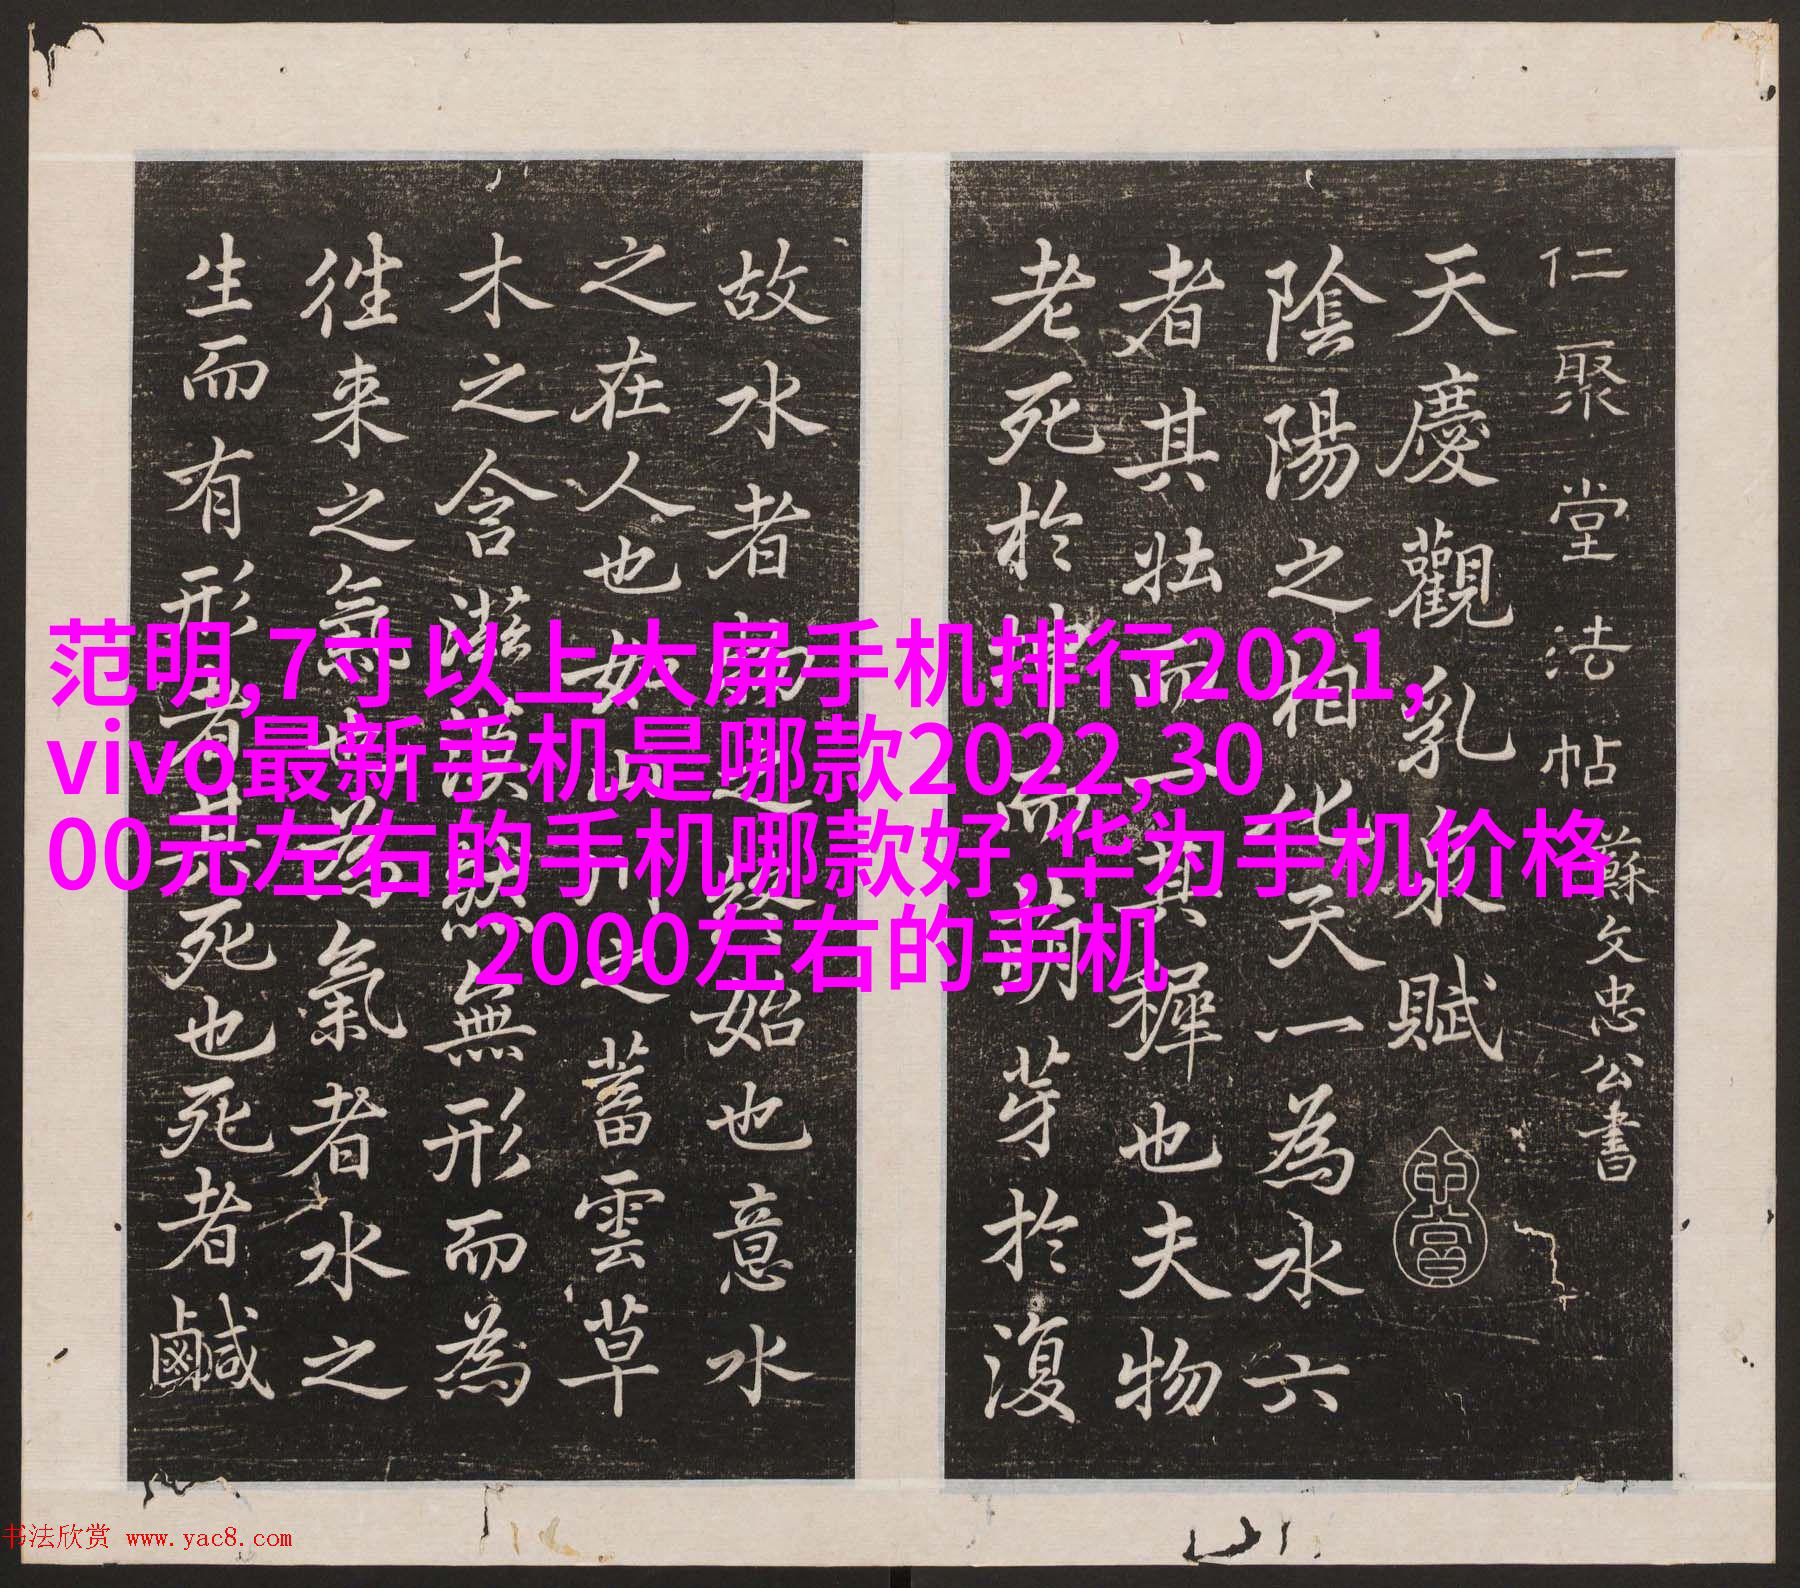 仁聚堂法帖 蘇文忠公書
天慶觀乳泉賦
陰陽之相化天一為水六
者其壯而一其穉也夫物
老死於坤而萌芽於復
故水者物之終始也意水
之在人也如山川之蓄雲草
木之含滋漠然無形而為
往来之氣也為氣者水之
生而有形者其死也死者鹹
范明,7寸以上大屏手机排行2021,
vivo最新手机是哪款2022,30
00元左右的手机哪款好,华为手机价格
2000左右的手机
书法欣赏 www.yac8.com